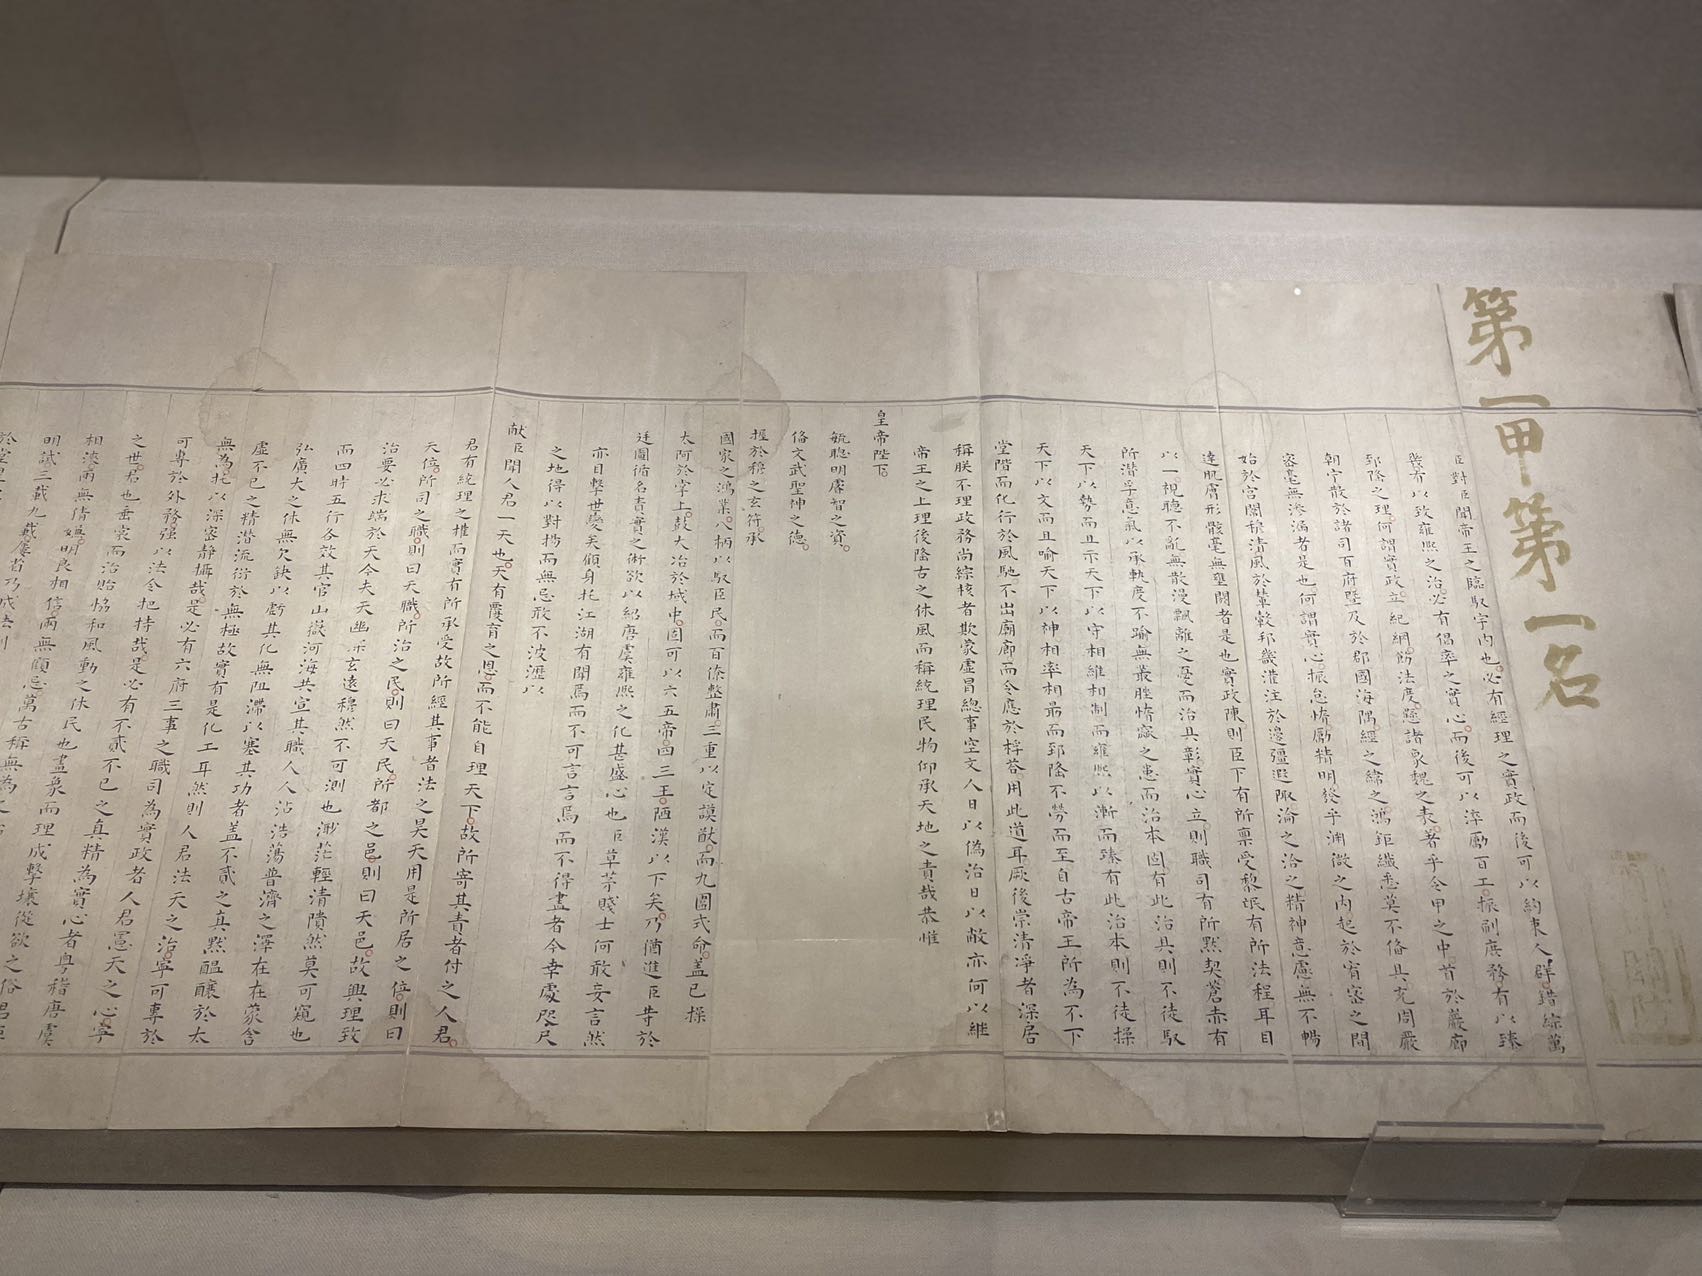 第一甲第一名
臣對臣聞帝王之臨馭宇內也必有經理之實政而後可以約束人群錯綜萬
幾有以致雍熙之治必有倡率之實心而後可以淬勵百工振刷庶務有以臻
郅隆之理何謂實政立紀綱飭法度懸諸象魏之表著乎令甲之中首於巖廊
朝宁散於諸司百府暨及於郡國海隅經之緯之鴻鉅纖悉莫不備具充周嚴
密毫無滲漏者是也何謂實心振怠惰勵精明發乎淵微之內起於宥密之間
始於宮闈穆清風於輦轂邦畿灌注於邊疆遐陬淪之洽之精神意慮無不暢
達肌膚形骸毫無壅閼者是也實政陳則臣下有所稟受黎氓有所法程耳目
以一視聽不亂無散漫飄離之憂而治具彰實心立則職司有所默契蒼赤有
所潛孚意氣以承軌度不踰無叢脞惰窳之患而治本固有此治具則不徒馭
天下以勢而且示天下以守相維相制而雍熙以漸而臻有此治本則不徒操
天下以文而且喻天下以神相率相最而郅隆不勞而至自古帝王所為不下
堂階而化行於風馳不出廟廊而令應於桴答用此道耳厥後崇清淨者深居
稱朕不理政務尚綜核者欺蒙虛冒總事空文人日以偽治日以敝亦何以繼
帝王之上理後隆古之休風而稱統理民物仰承天地之責哉恭惟
皇帝陛下
毓聰明睿智之資
備文武聖神之德
握於穆之玄符承
國家之鴻業八柄以馭臣民而百僚整肅三重以定謨猷而九圍式命蓋已操
太阿於掌上鼓大冶於域中固可以六五帝四三王陋漢以下矣乃猶進臣等於
廷圖循名責實之術欲以紹唐虞雍熙之化甚盛心也臣草茅賤士何敢妄言然
亦目擊世變矣顧身托江湖有聞焉而不可言言焉而不得盡者今幸處咫尺
之地得以對揚而無忌敢不波瀝以
献臣聞人君一天也天有覆育之恩而不能自理天下故所寄其責者付之人君
君有統理之權而實有所承受故所經其事者法之昊天用是所居之位則曰
天位所司之職則曰天職所治之民則曰天民所都之邑則曰天邑故興理致
治要必求端於天今夫天幽深玄遠穆然不可測也渺茫輕清隤然莫可窺也
而四時五行各效其官山嶽河海共宣其職人人沾浩蕩普濟之澤在在蒙含
弘廣大之休無欠缺以虧其化無阻滯以塞其功者蓋不貳之真默醞釀於太
虛不已之精潛流衍於無極故實有是化工耳然則人君法天之治寧可專於
無為托以深密靜攝哉是必有六府三事之職司為實政者人君憲天之心寧
可專於外務強以法令把持哉是必有不貳不已之真精為實心者粵稽唐虞
之世君也垂裳而治貽協和風動之休民也畫象而理成擊壤從欲之俗君臣
相浹兩無猜嫌明良相信兩無顧忌萬古稱無為之
明試三載九載屢省乃成法制